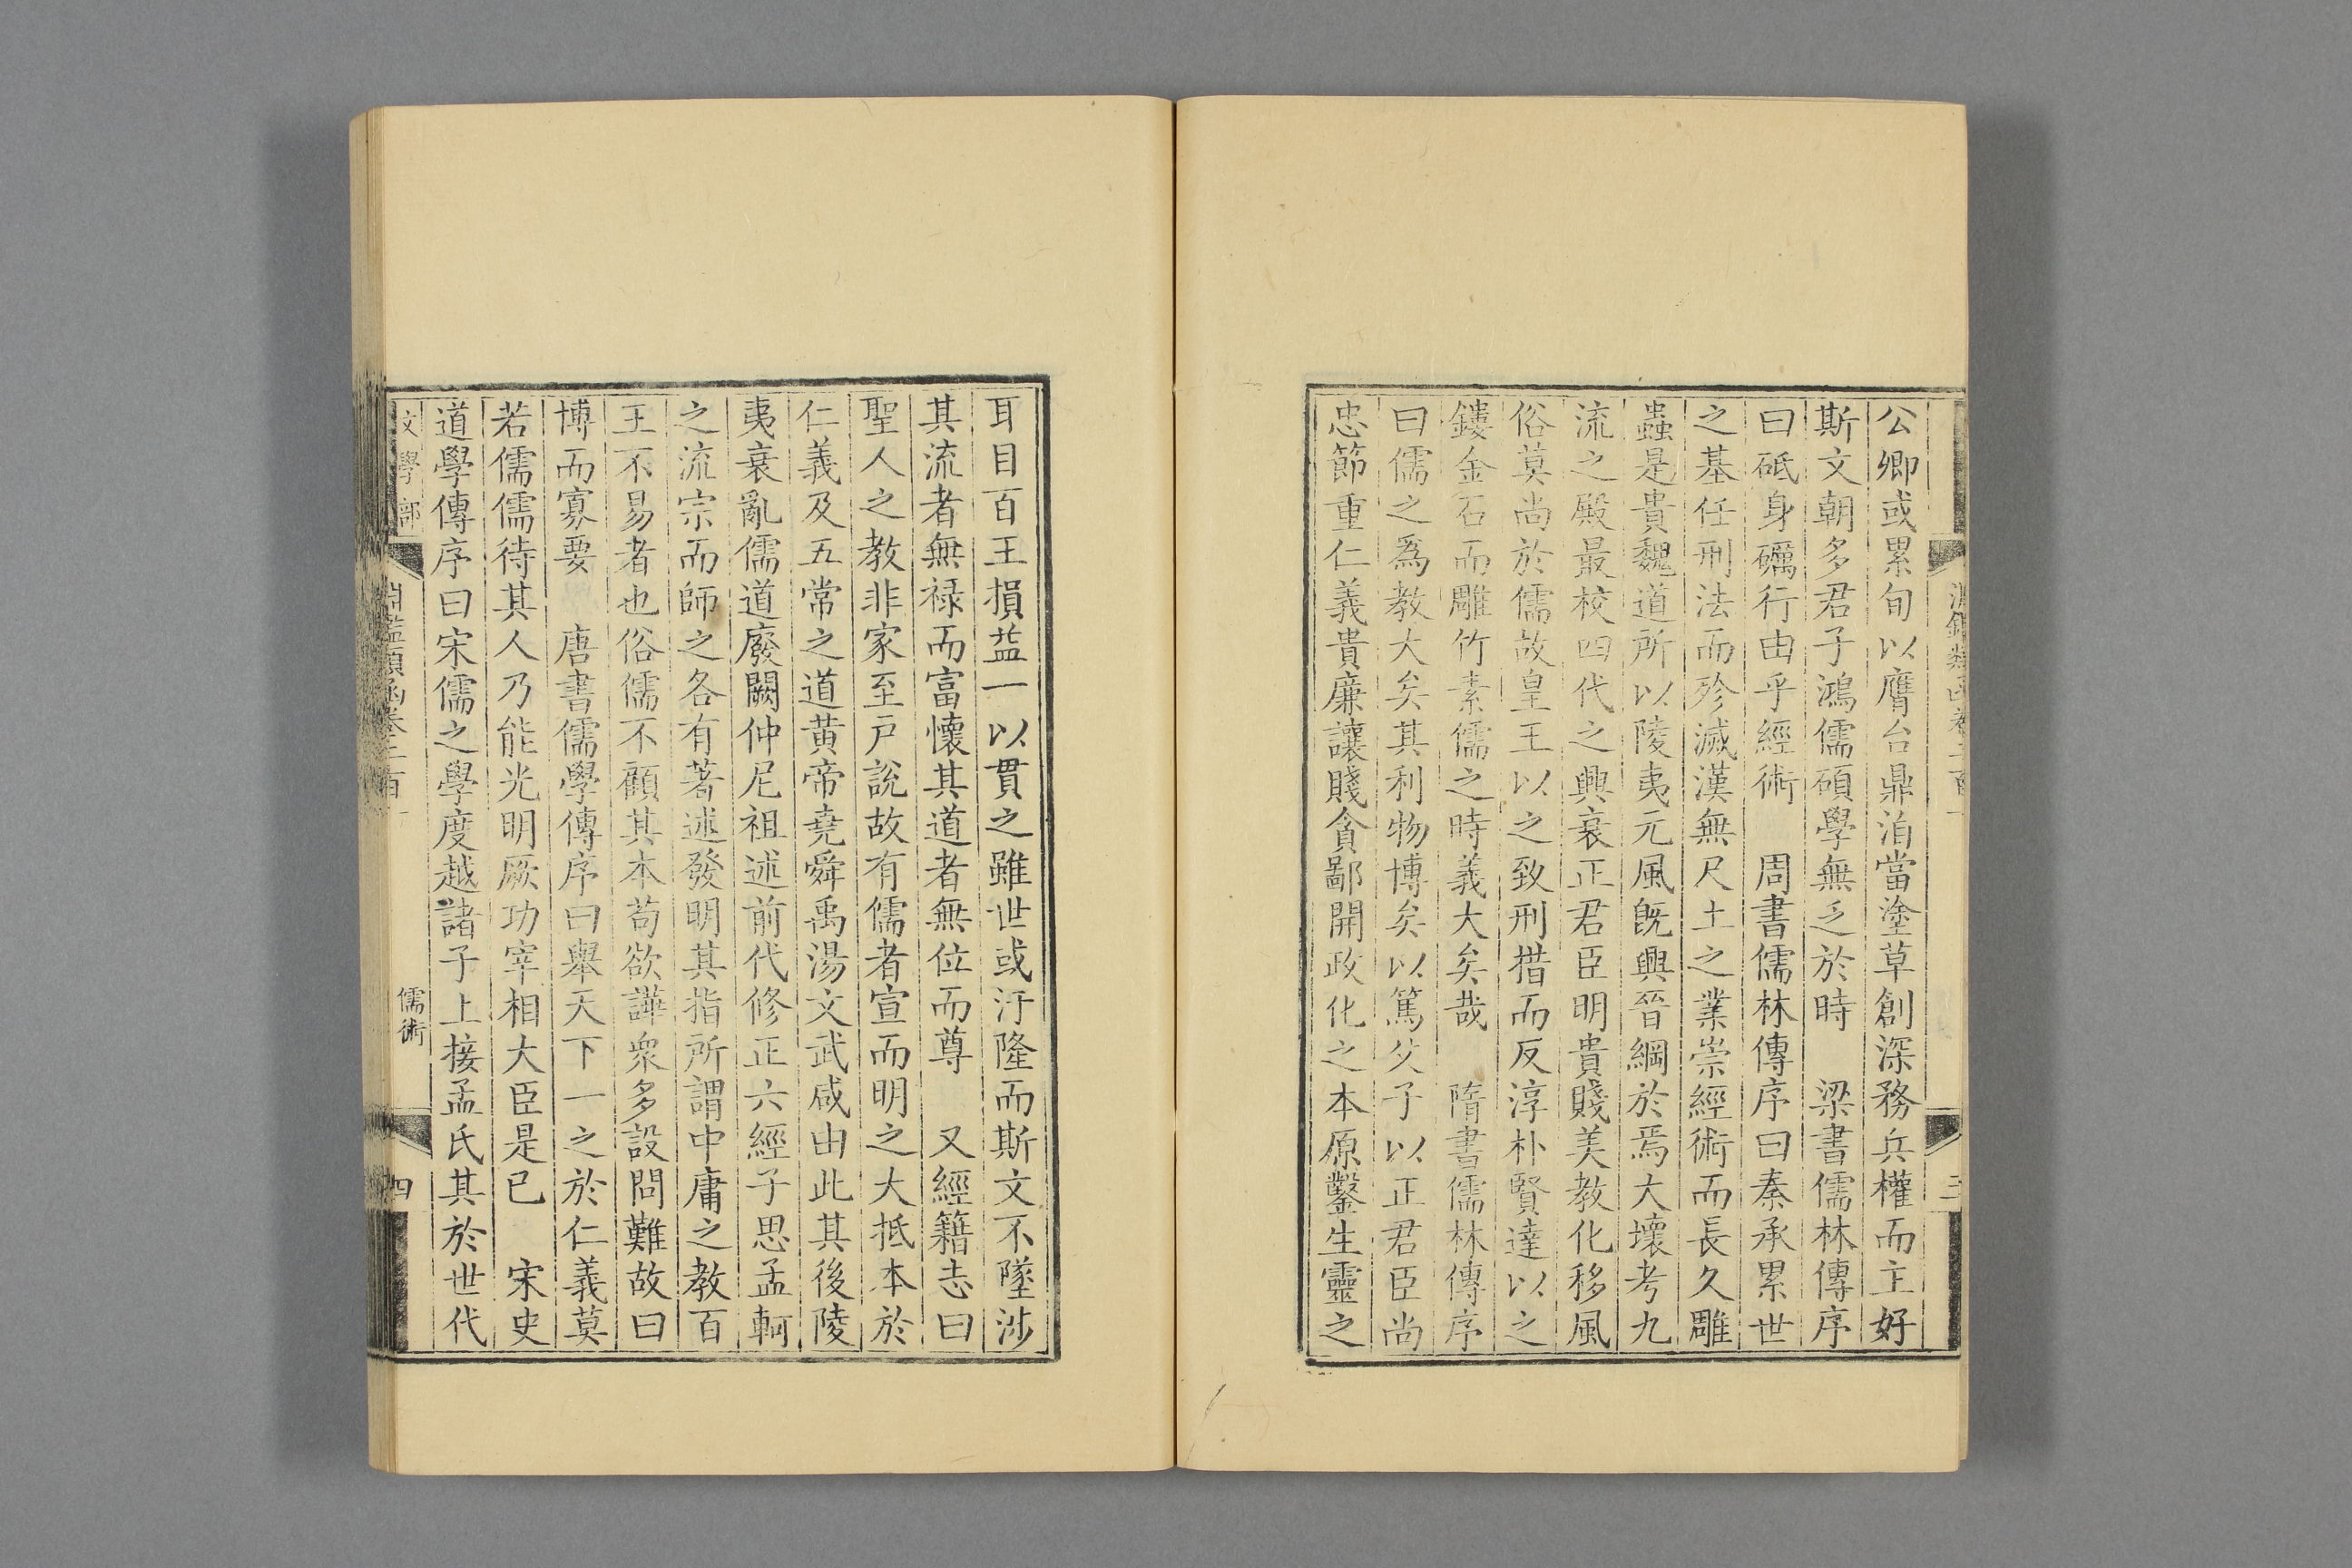 公卿或累旬以膺台鼎洎當塗草創深務兵權而主好
斯文朝多君子鴻儒碩學無乏於時　梁書儒林傳序
曰砥身礪行由乎經術　周書儒林傳序曰秦承累世
之基任刑法而殄滅漢無尺土之業崇經術而長久雕
蟲是貴魏道所以陵夷元風旣興晉綱於焉大壞考九
流之殿最校四代之興衰正君臣明貴賤美教化移風
俗莫尚於儒故皇王以之致刑措而反淳朴賢達以之
鏤金石而雕竹素儒之時義大矣哉　隋書儒林傳序
曰儒之爲教大矣其利物博矣以篤父子以正君臣尚
忠節重仁義貴廉讓賤貪鄙開政化之本原鑿生靈之
耳目百王損益一以貫之雖世或汙隆而斯文不墜涉
其流者無祿而富懷其道者無位而尊　又經籍志曰
聖人之教非家至戶說故有儒者宣而明之大抵本於
仁義及五常之道黃帝堯舜禹湯文武咸由此其後陵
夷衰亂儒道廢闕仲尼祖述前代修正六經子思孟軻
之流宗而師之各有著述發明其指所謂中庸之教百
王不易者也俗儒不顧其本苟欲譁衆多設問難故曰
博而寡要　唐書儒學傳序曰舉天下一之於仁義莫
若儒儒待其人乃能光明厥功宰相大臣是已　宋史
道學傳序曰宋儒之學度越諸子上接孟氏其於世代
文學部　淵鑑類函卷二百　儒術　四